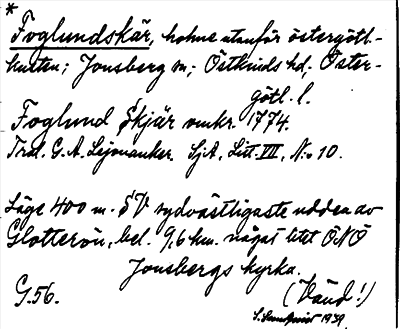 *
Foglundskär, holme utanför östergötl.-
kusten; Jonsberg sn; Östkinds hd, Öster-
götl. l.
Foglund Skjär omkr. 1774.
Trol. G. A. Lejonanker. SjA, Litt. VII, N:o 10.
Läge 400 m. SV sydvästligaste udden av
Glotterön, bel. 9,6 km. något litet ONO
Jonsbergs kyrka.
G. 56. (Vänd!)
1939.